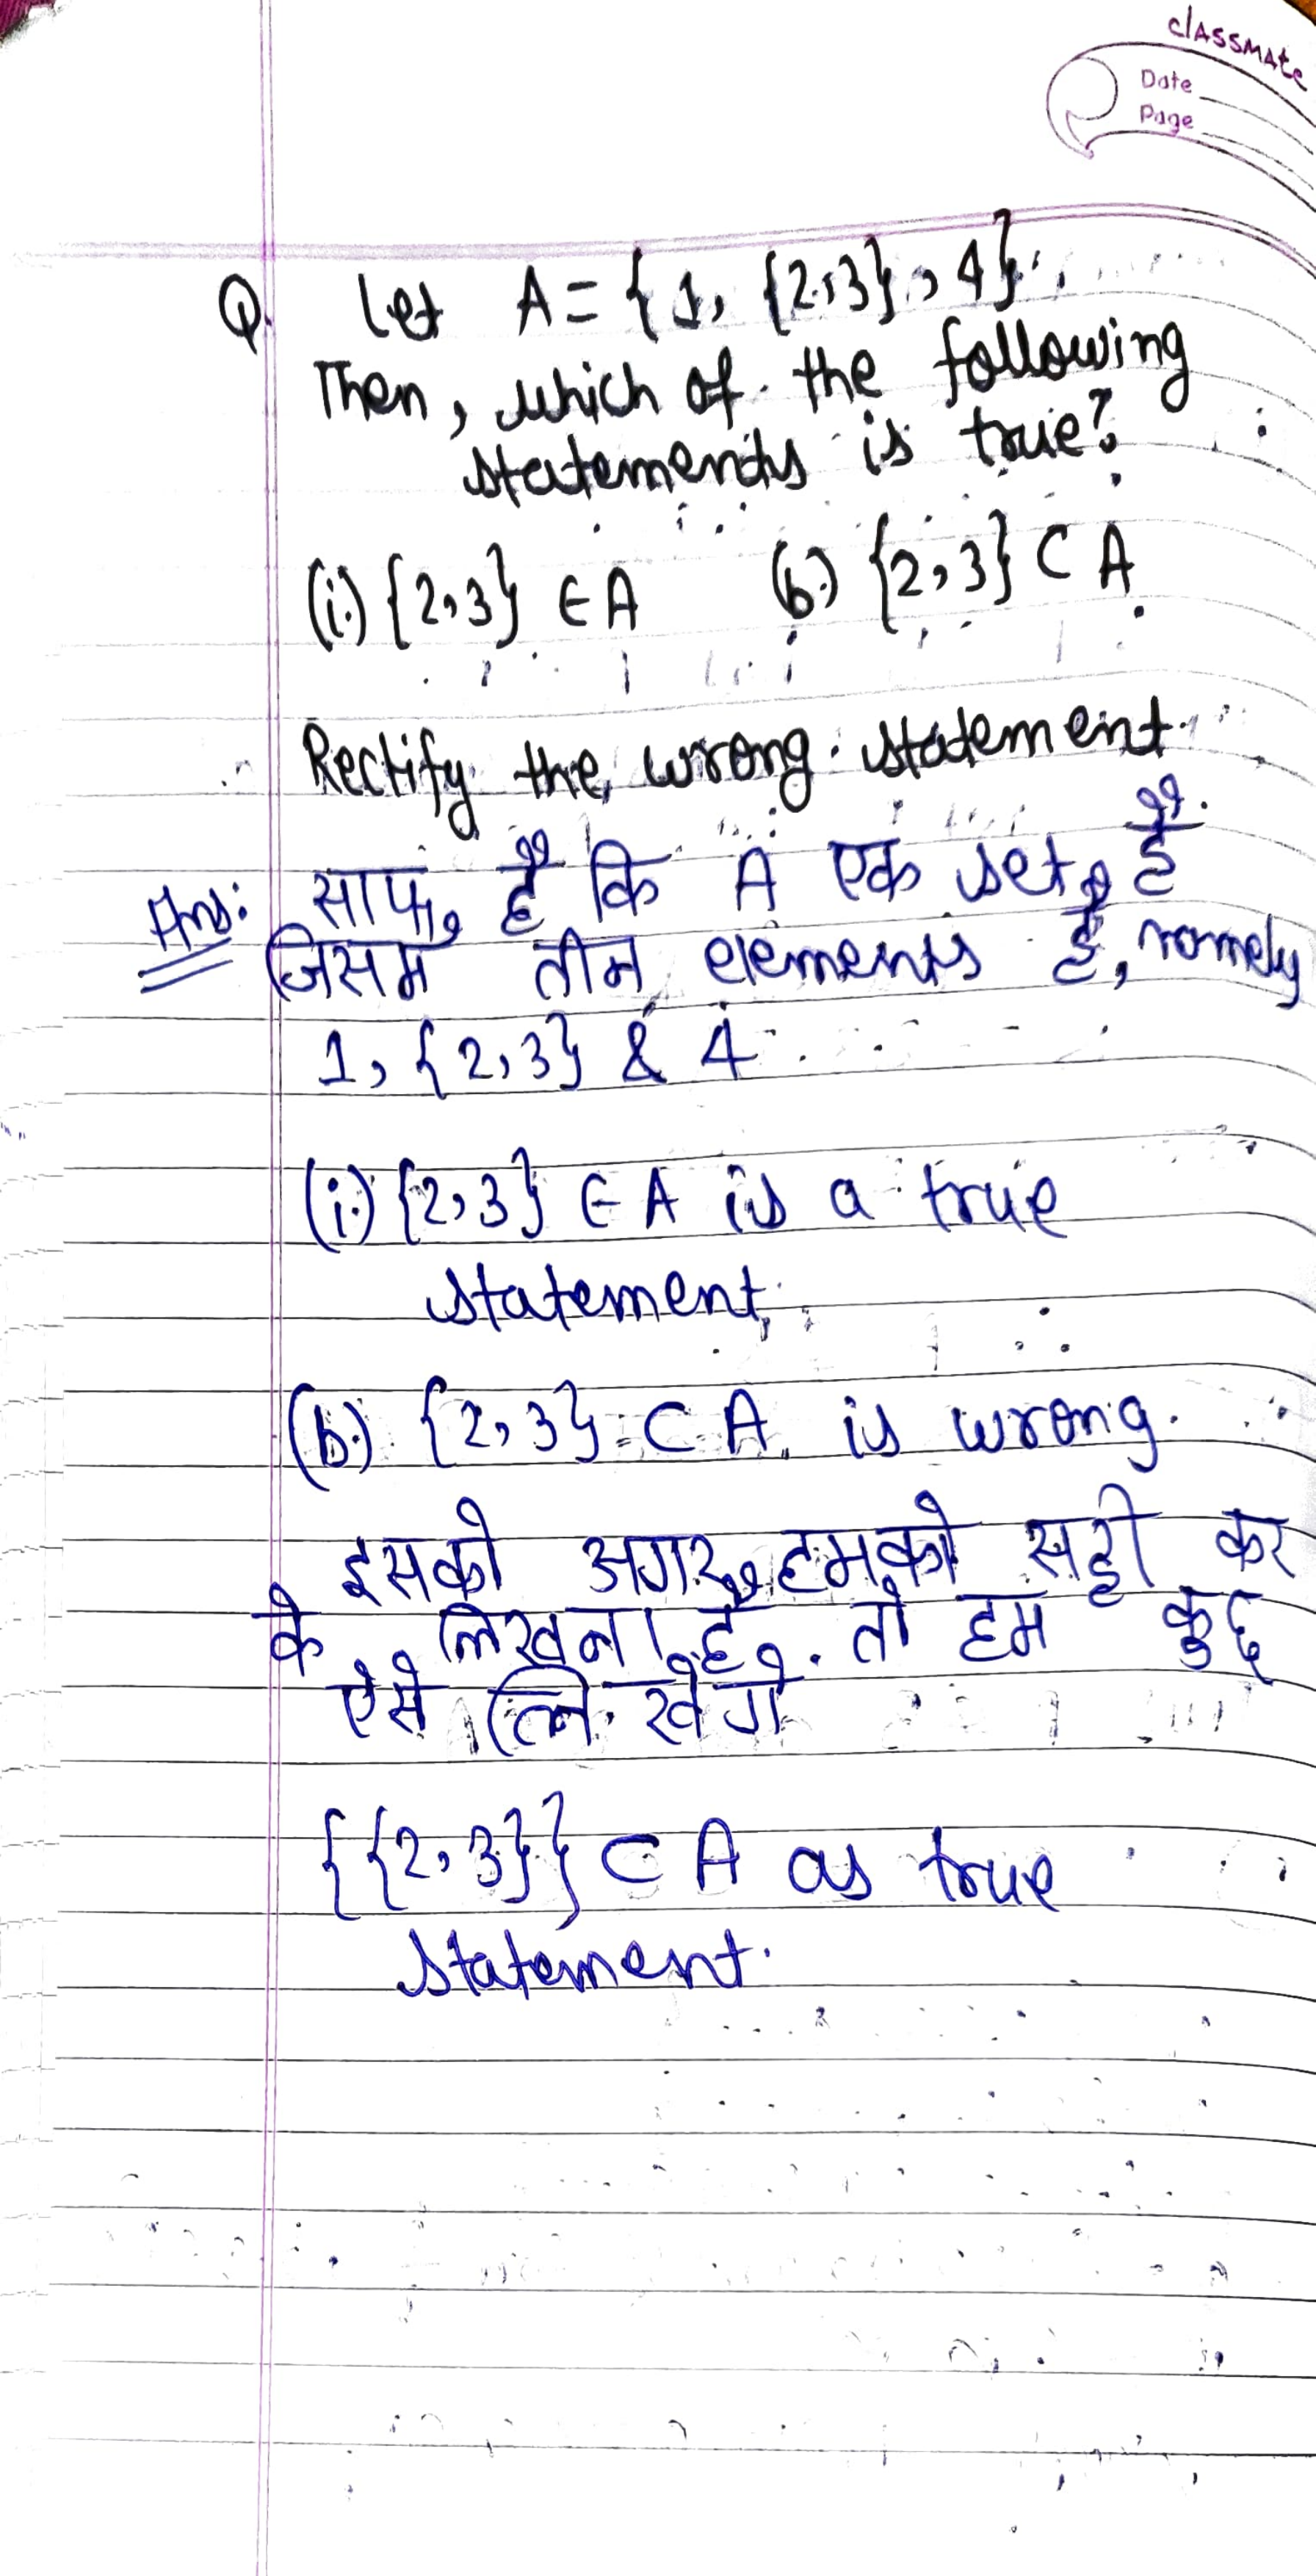 classmate
Date
Page
Q. Let A = {1, {2,3}, 4}.
Then, which of the following
statements is true?
(i.) {2,3} ∈ A (b.) {2,3} ⊂ A
Rectify the wrong statement.
Ans: साफ है कि A एक set है
जिसमें तीन elements है, namely
1, {2,3} & 4
(i.) {2,3} ∈ A is a true
statement,
(b.) {2,3} ⊂ A is wrong.
इसको अगर हमको सही कर
के लिखना है. तो हम कुछ
ऐसे लिखेगे
{{2,3}} ⊂ A as true
statement.